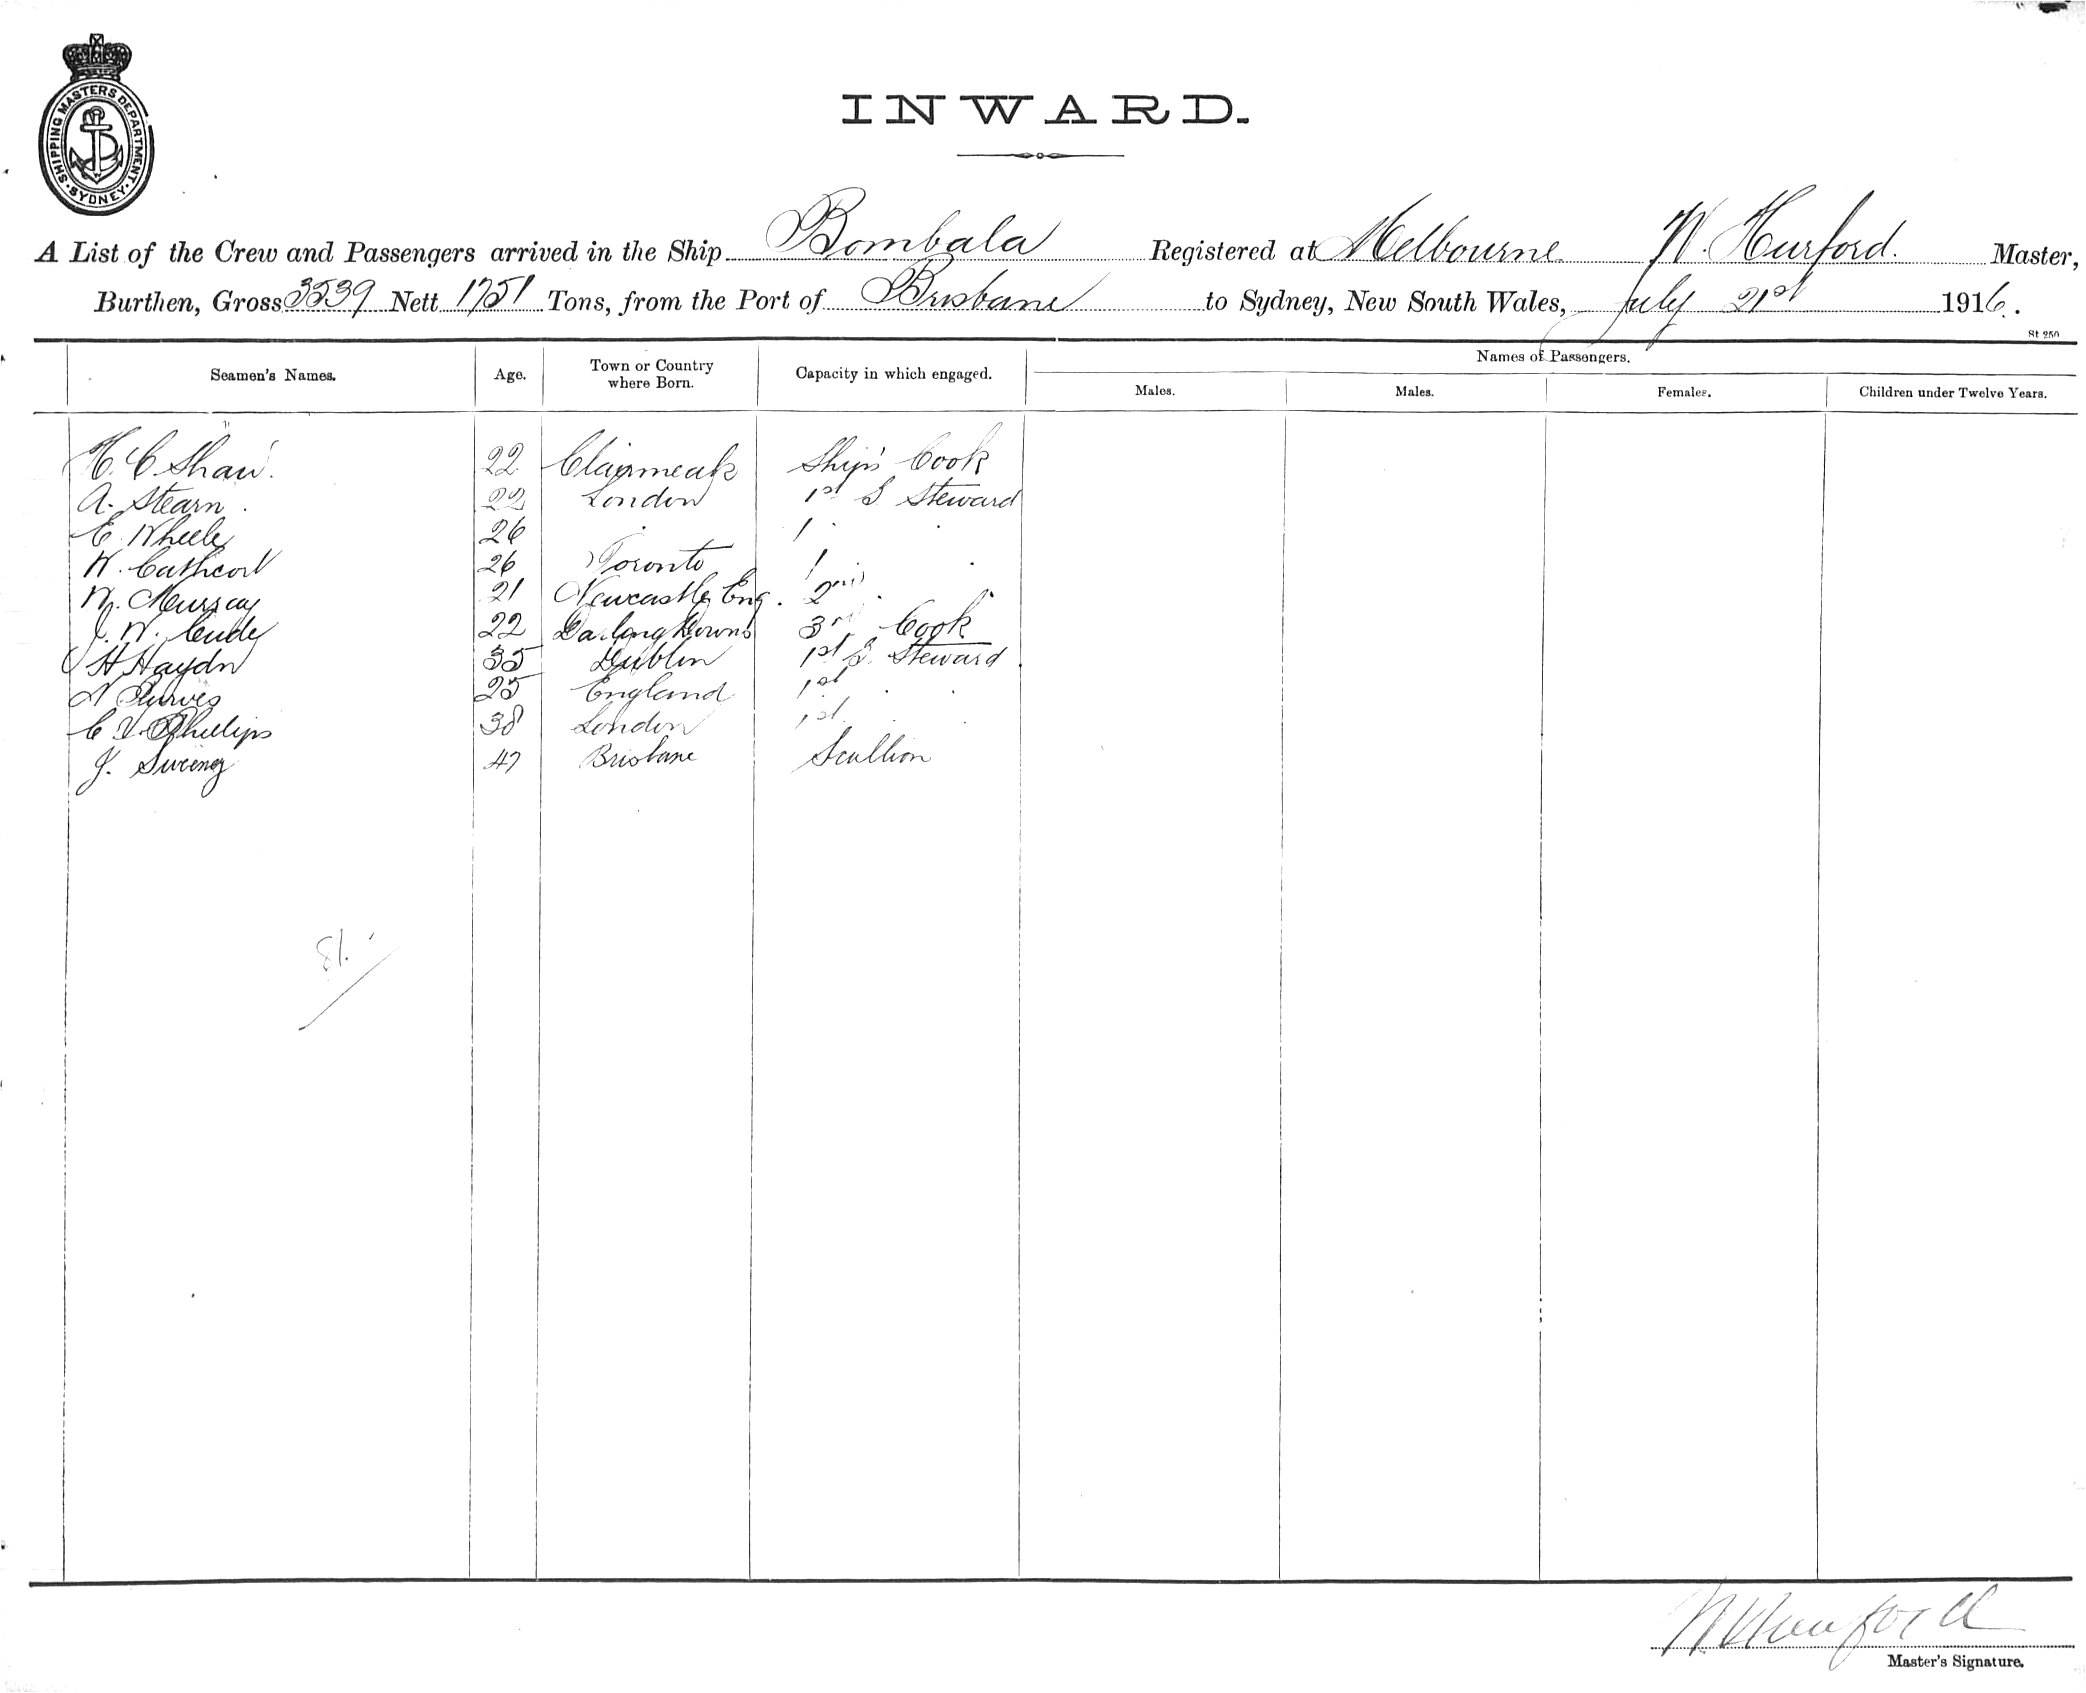 SHIPPING MASTERS DEPARTMENT · SYDNEY ·
INWARD.
A List of the Crew and Passengers arrived in the Ship Bombala Registered at Melbourne W. Hurford. Master,
Burthen, Gross 3539 Nett 1751 Tons, from the Port of Brisbane to Sydney, New South Wales, July 21st 1916.
St 250
Names of Passengers.
Seamen's Names. Age. Town or Country where Born. Capacity in which engaged. Males. Males. Females. Children under Twelve Years.
H. C Shaw. 22 Ship's Cook
A. Stearn. 22 London 1st S Steward
E. Wheele 26 " 1 "
W. Cathcort 26 Toronto 1 "
W. Murray 21 Newcastle Eng. 2nd "
J. W. Cude 22 Darling Downs 3rd Cook
H Haydn 35 Dublin 1st S. Steward
Purves 25 England 1st "
C V Phillips 38 London 1st "
J. Sweeney 47 Brisbane Scullion
81.
WHurford
Master's Signature.